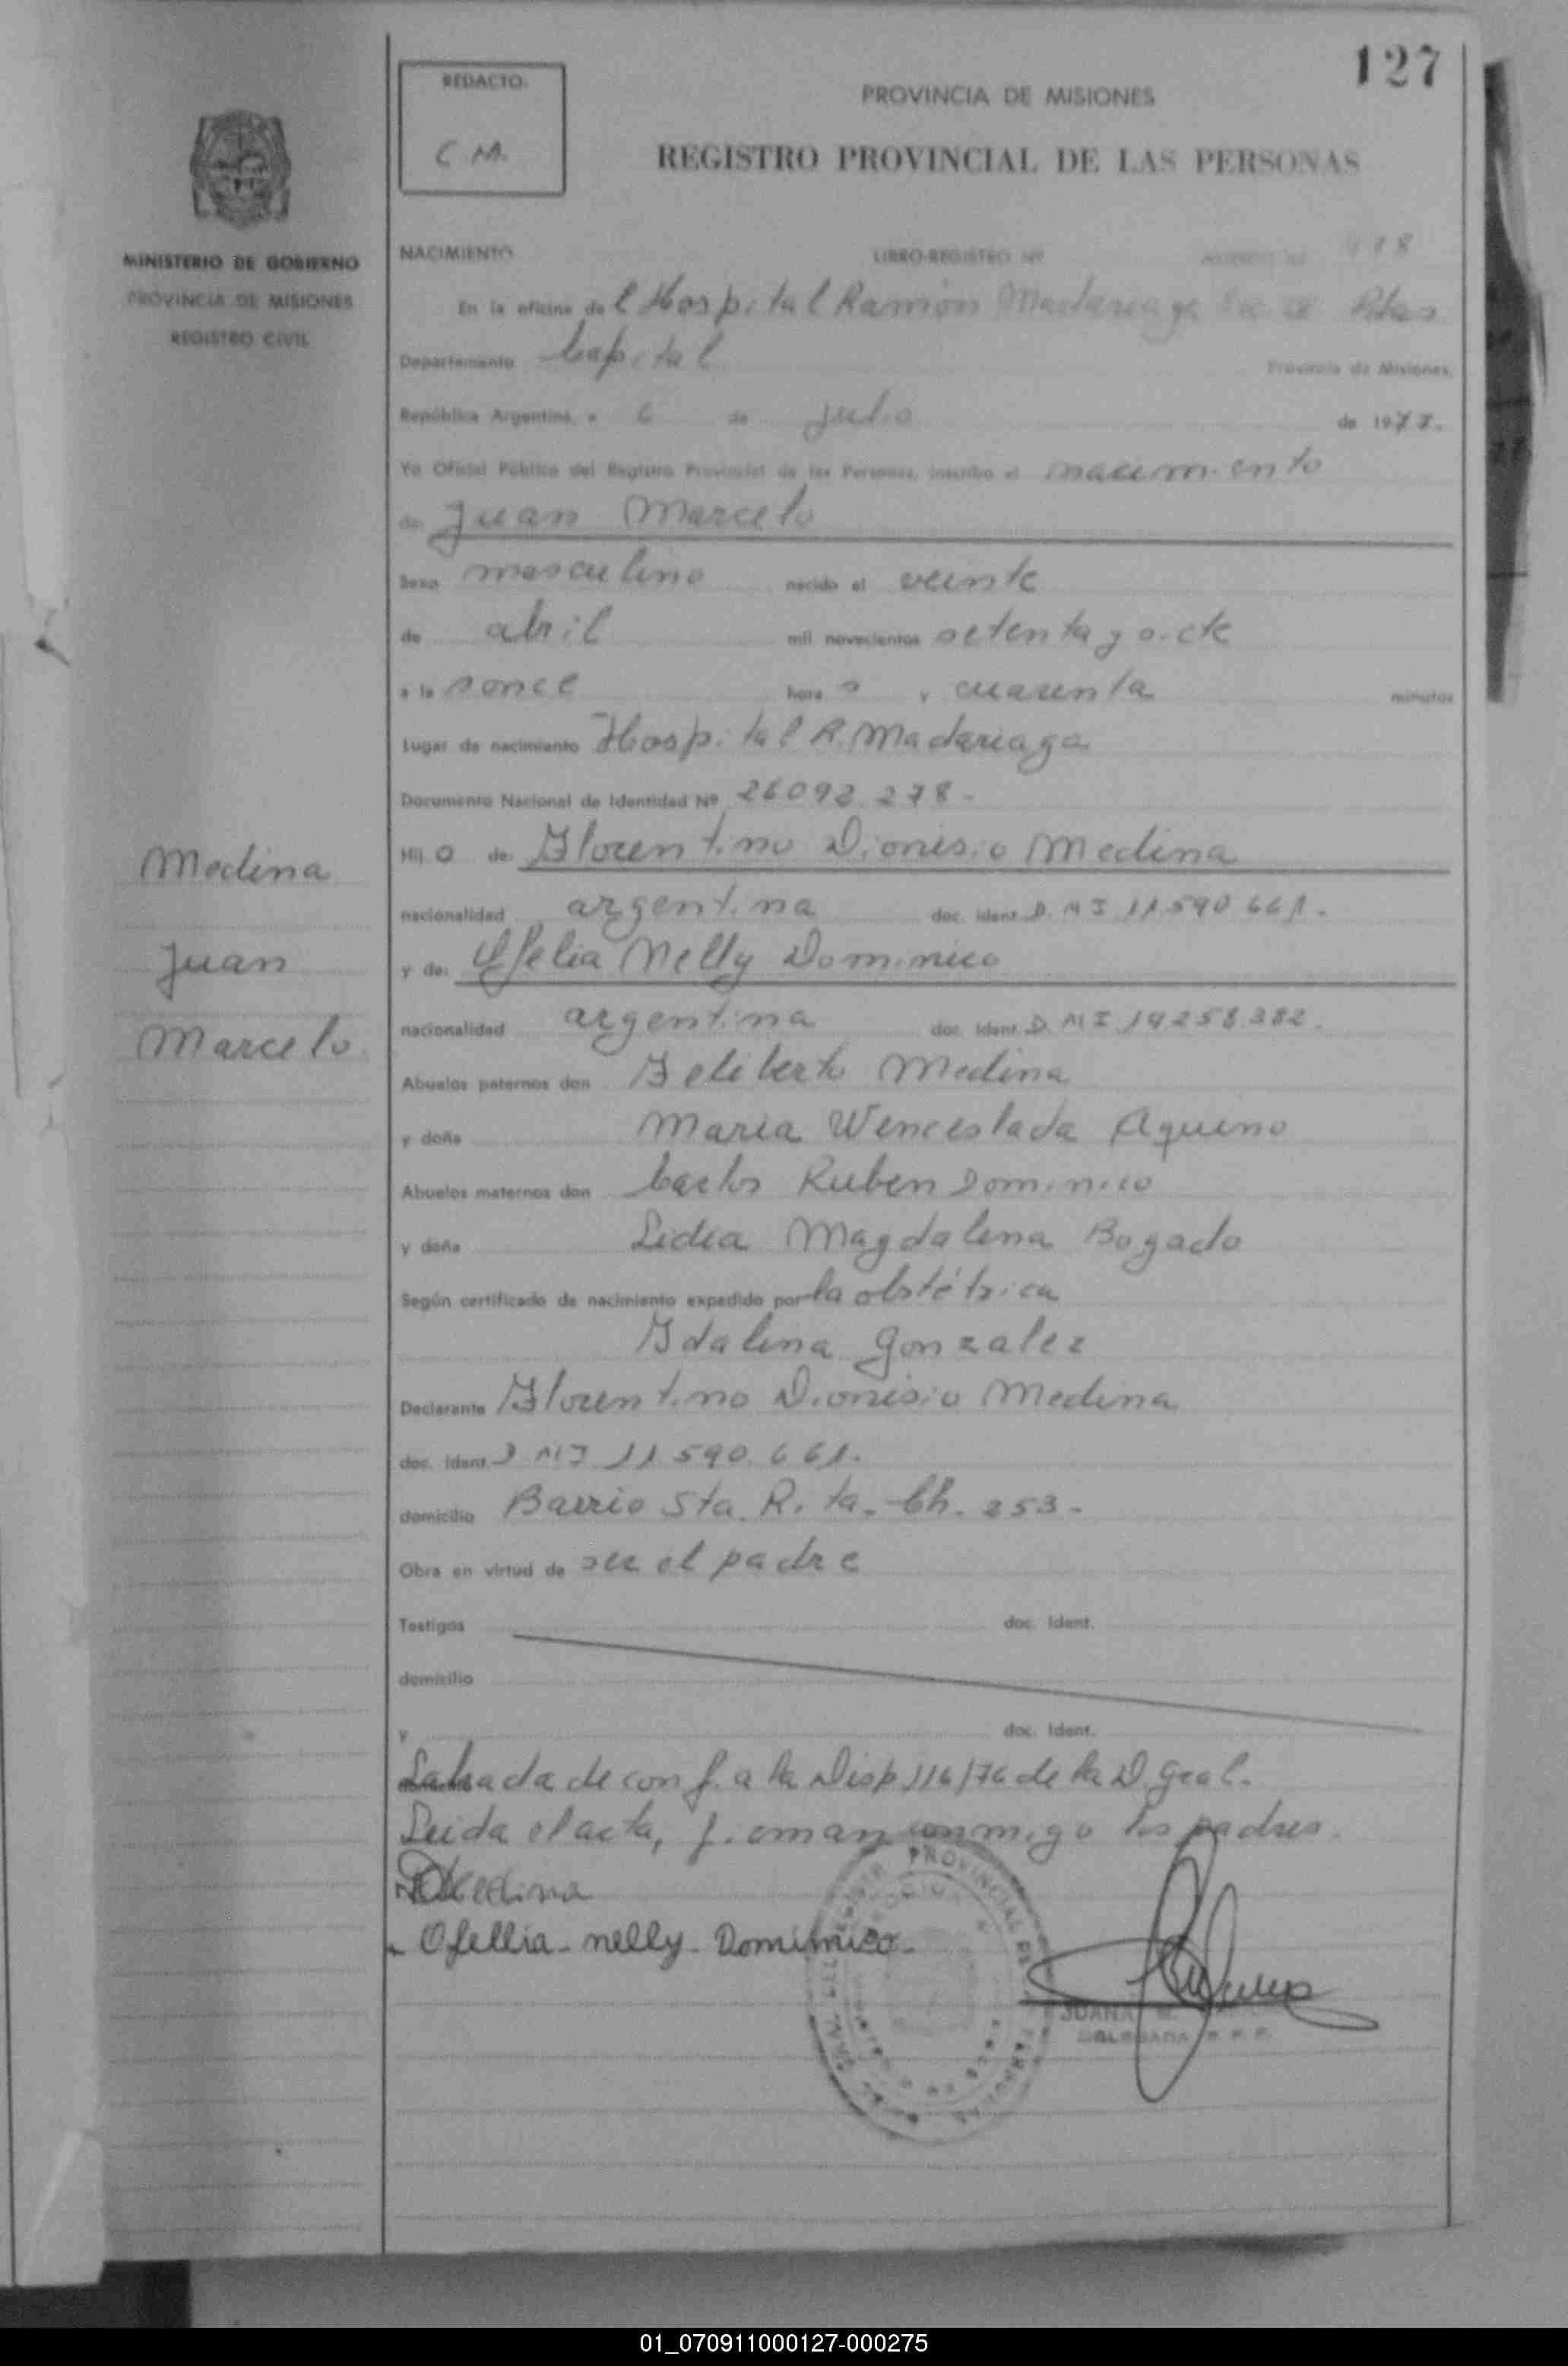 127
REDACTO.
C M.
PROVINCIA DE MISIONES
REGISTRO PROVINCIAL DE LAS PERSONAS
MINISTERIO DE GOBIERNO
PROVINCIA DE MISIONES
REGISTRO CIVIL
NACIMIENTO LIBRO-REGISTRO Nº
En la oficina de l Hospital Ramón Madariaga
Departamento Capital Provincia de Misiones,
República Argentina, a 6 de julio de 1977.
Yo Oficial Público del Registro Provincial de las Personas, inscribo el nacimiento
de Juan Marcelo
Sexo masculino nacido el veinte
de abril mil novecientos setenta y siete
a la s once hora s y cuarenta minutos
Lugar de nacimiento Hospital R. Madariaga
Documento Nacional de Identidad Nº 278.
Hij o de Florentino Dionisio Medina
nacionalidad argentina doc. Ident. D. N I 11.590.661.
y de: Ofelia Nelly Dominico
nacionalidad argentina doc. Ident. D. N I 14.258.382.
Abuelos paternos don Feliberto Medina
y doña Maria Wenceslada Aquino
Abuelos maternos don Carlos Ruben Dominico
y doña Lidia Magdalena Bogado
Según certificado de nacimiento expedido por la obstétrica
Idalina Gonzalez
Declarante Florentino Dionisio Medina
doc. Ident. D N I 11.590.661.
domicilio Barrio Sta. Rita. Ch. 253.
Obra en virtud de ser el padre
Testigos doc. Ident.
domicilio
y doc. Ident.
Labrada de conf. a la Disp. 116/76 de la D. Gral.
Leida el acta, firman conmigo los padres.
Medina
Ofellia - nelly - Dominico -
JUANA
DELEGADA R. P. P.
Medina
Juan
Marcelo
01_070911000127-000275